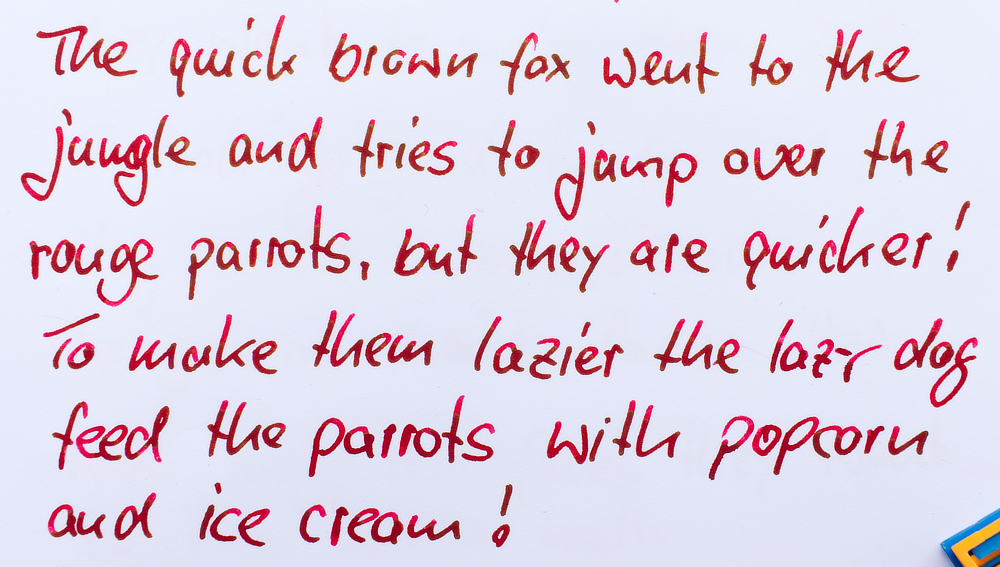 The quick brown fox went to the
jungle and tries to jump over the
rouge parrots, but they are quicker!
To make them lazier the lazy dog
feed the parrots with popcorn
and ice cream!